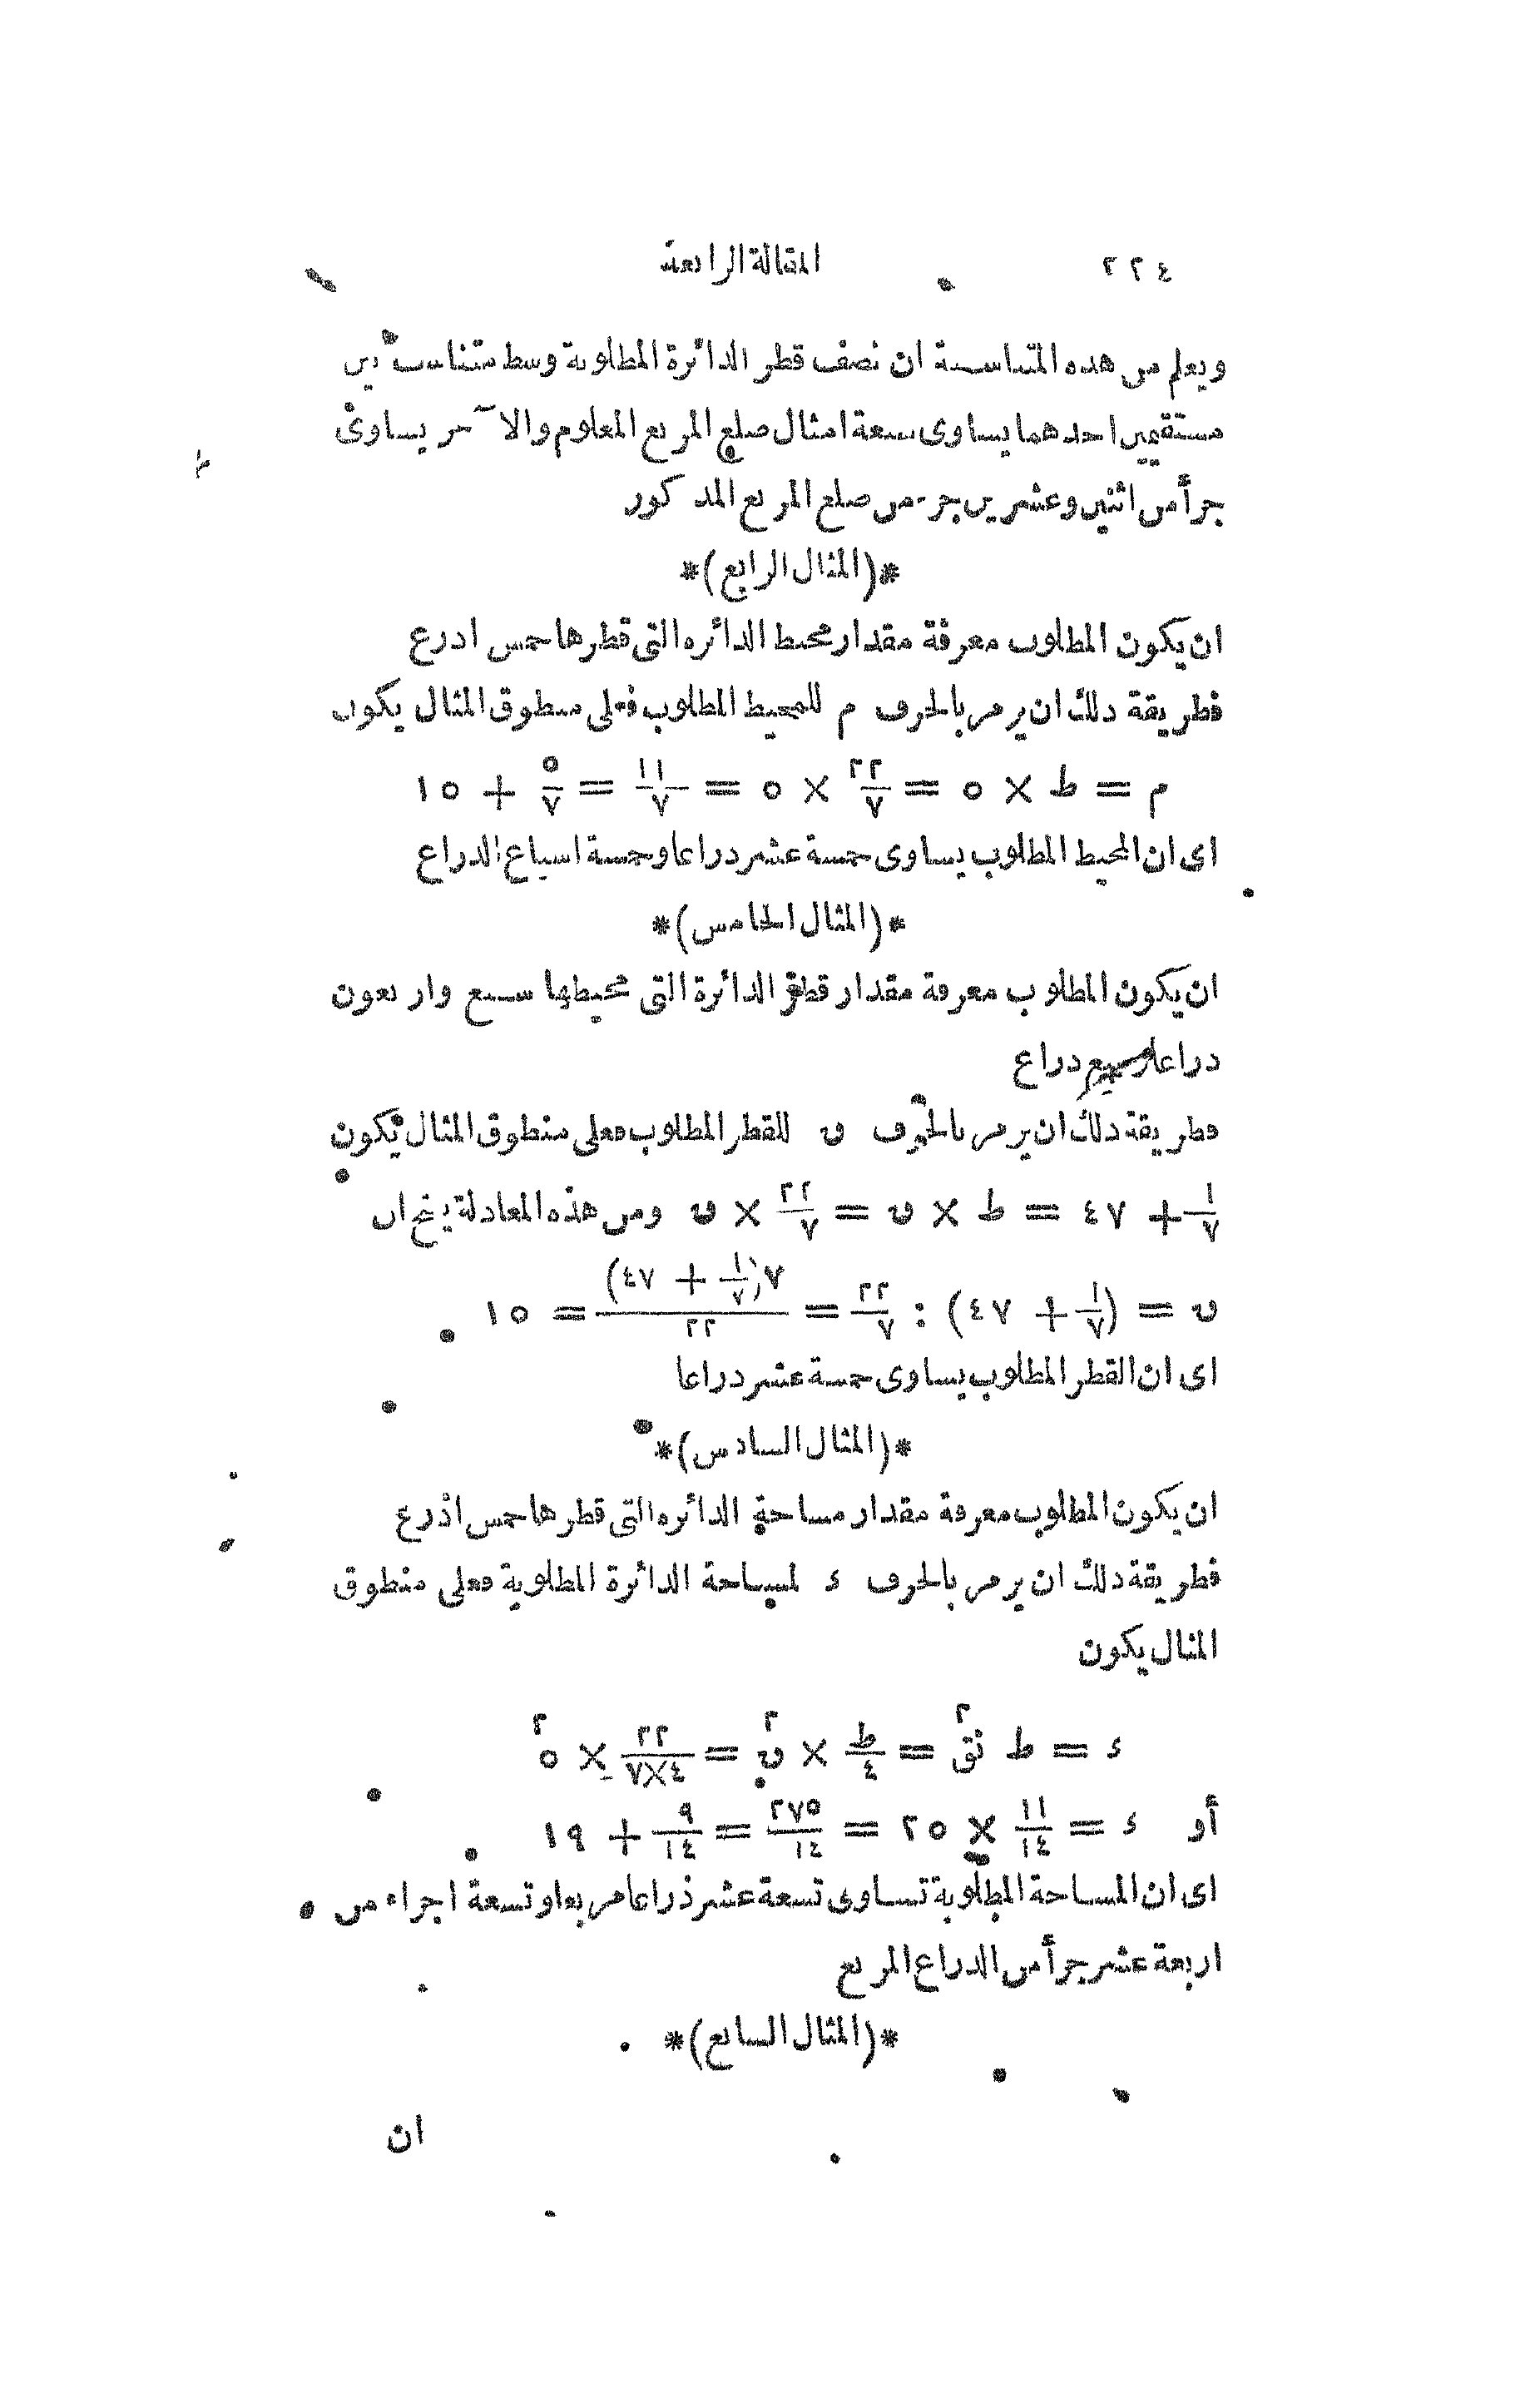 ٢٢٤ المقالة الرابعة
ويعلم من هذه المتناسبة ان نصف قطر الدائرة المطلوبة وسط متناسب بين
مستقيمين احدهما يساوى سبعة امثال ضلع المربع المعلوم والآخر يساوى
جزأ من اثنين وعشرين جزء من ضلع المربع المذكور
*(المثال الرابع)*
ان يكون المطلوب معرفة مقدار محيط الدائرة التى قطرها خمس اذرع
فطريقة ذلك ان يرمز بالحرف م للمحيط المطلوب فعلى منطوق المثال يكون
م = ط × ٥ = ٢٢/٧ × ٥ = ١١٠/٧ = ٥/٧ + ١٥
اى ان المحيط المطلوب يساوى خمسة عشر ذراعا وخمسة اسباع الذراع
*(المثال الخامس)*
ان يكون المطلوب معرفة مقدار قطر الدائرة التى محيطها سبع واربعون
ذراعا وسبع ذراع
فطريقة ذلك ان يرمز بالحرف ق للقطر المطلوب فعلى منطوق المثال يكون
١/٧ + ٤٧ = ط × ق = ٢٢/٧ × ق ومن هذه المعادلة ينتج ان
ق = (١/٧ + ٤٧) : ٢٢/٧ = ٧(١/٧ + ٤٧)/٢٢ = ١٥
اى ان القطر المطلوب يساوى خمسة عشر ذراعا
*(المثال السادس)*
ان يكون المطلوب معرفة مقدار مساحة الدائرة التى قطرها خمس اذرع
فطريقة ذلك ان يرمز بالحرف ء لمساحة الدائرة المطلوبة فعلى منطوق
المثال يكون
ء = ط نق٢ = ط/٤ × ق٢ = ٢٢/٤×٧ × ٥٢
أو ء = ١١/١٤ × ٢٥ = ٢٧٥/١٤ = ٩/١٤ + ١٩
اى ان المساحة المطلوبة تساوى تسعة عشر ذراعا مربعا وتسعة اجزاء من
اربعة عشر جزأ من الذراع المربع
*(المثال السابع)*
ان